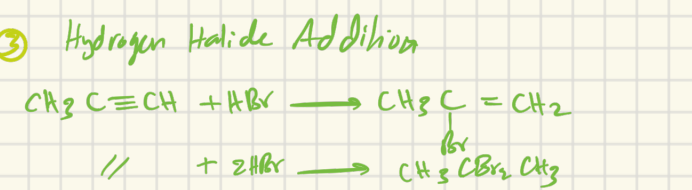 ③ Hydrogen Halide Addition
CH3 C≡CH + HBr ⟶ CH3 C = CH2
|
Br
〃 + 2HBr ⟶ CH3 CBr2 CH3